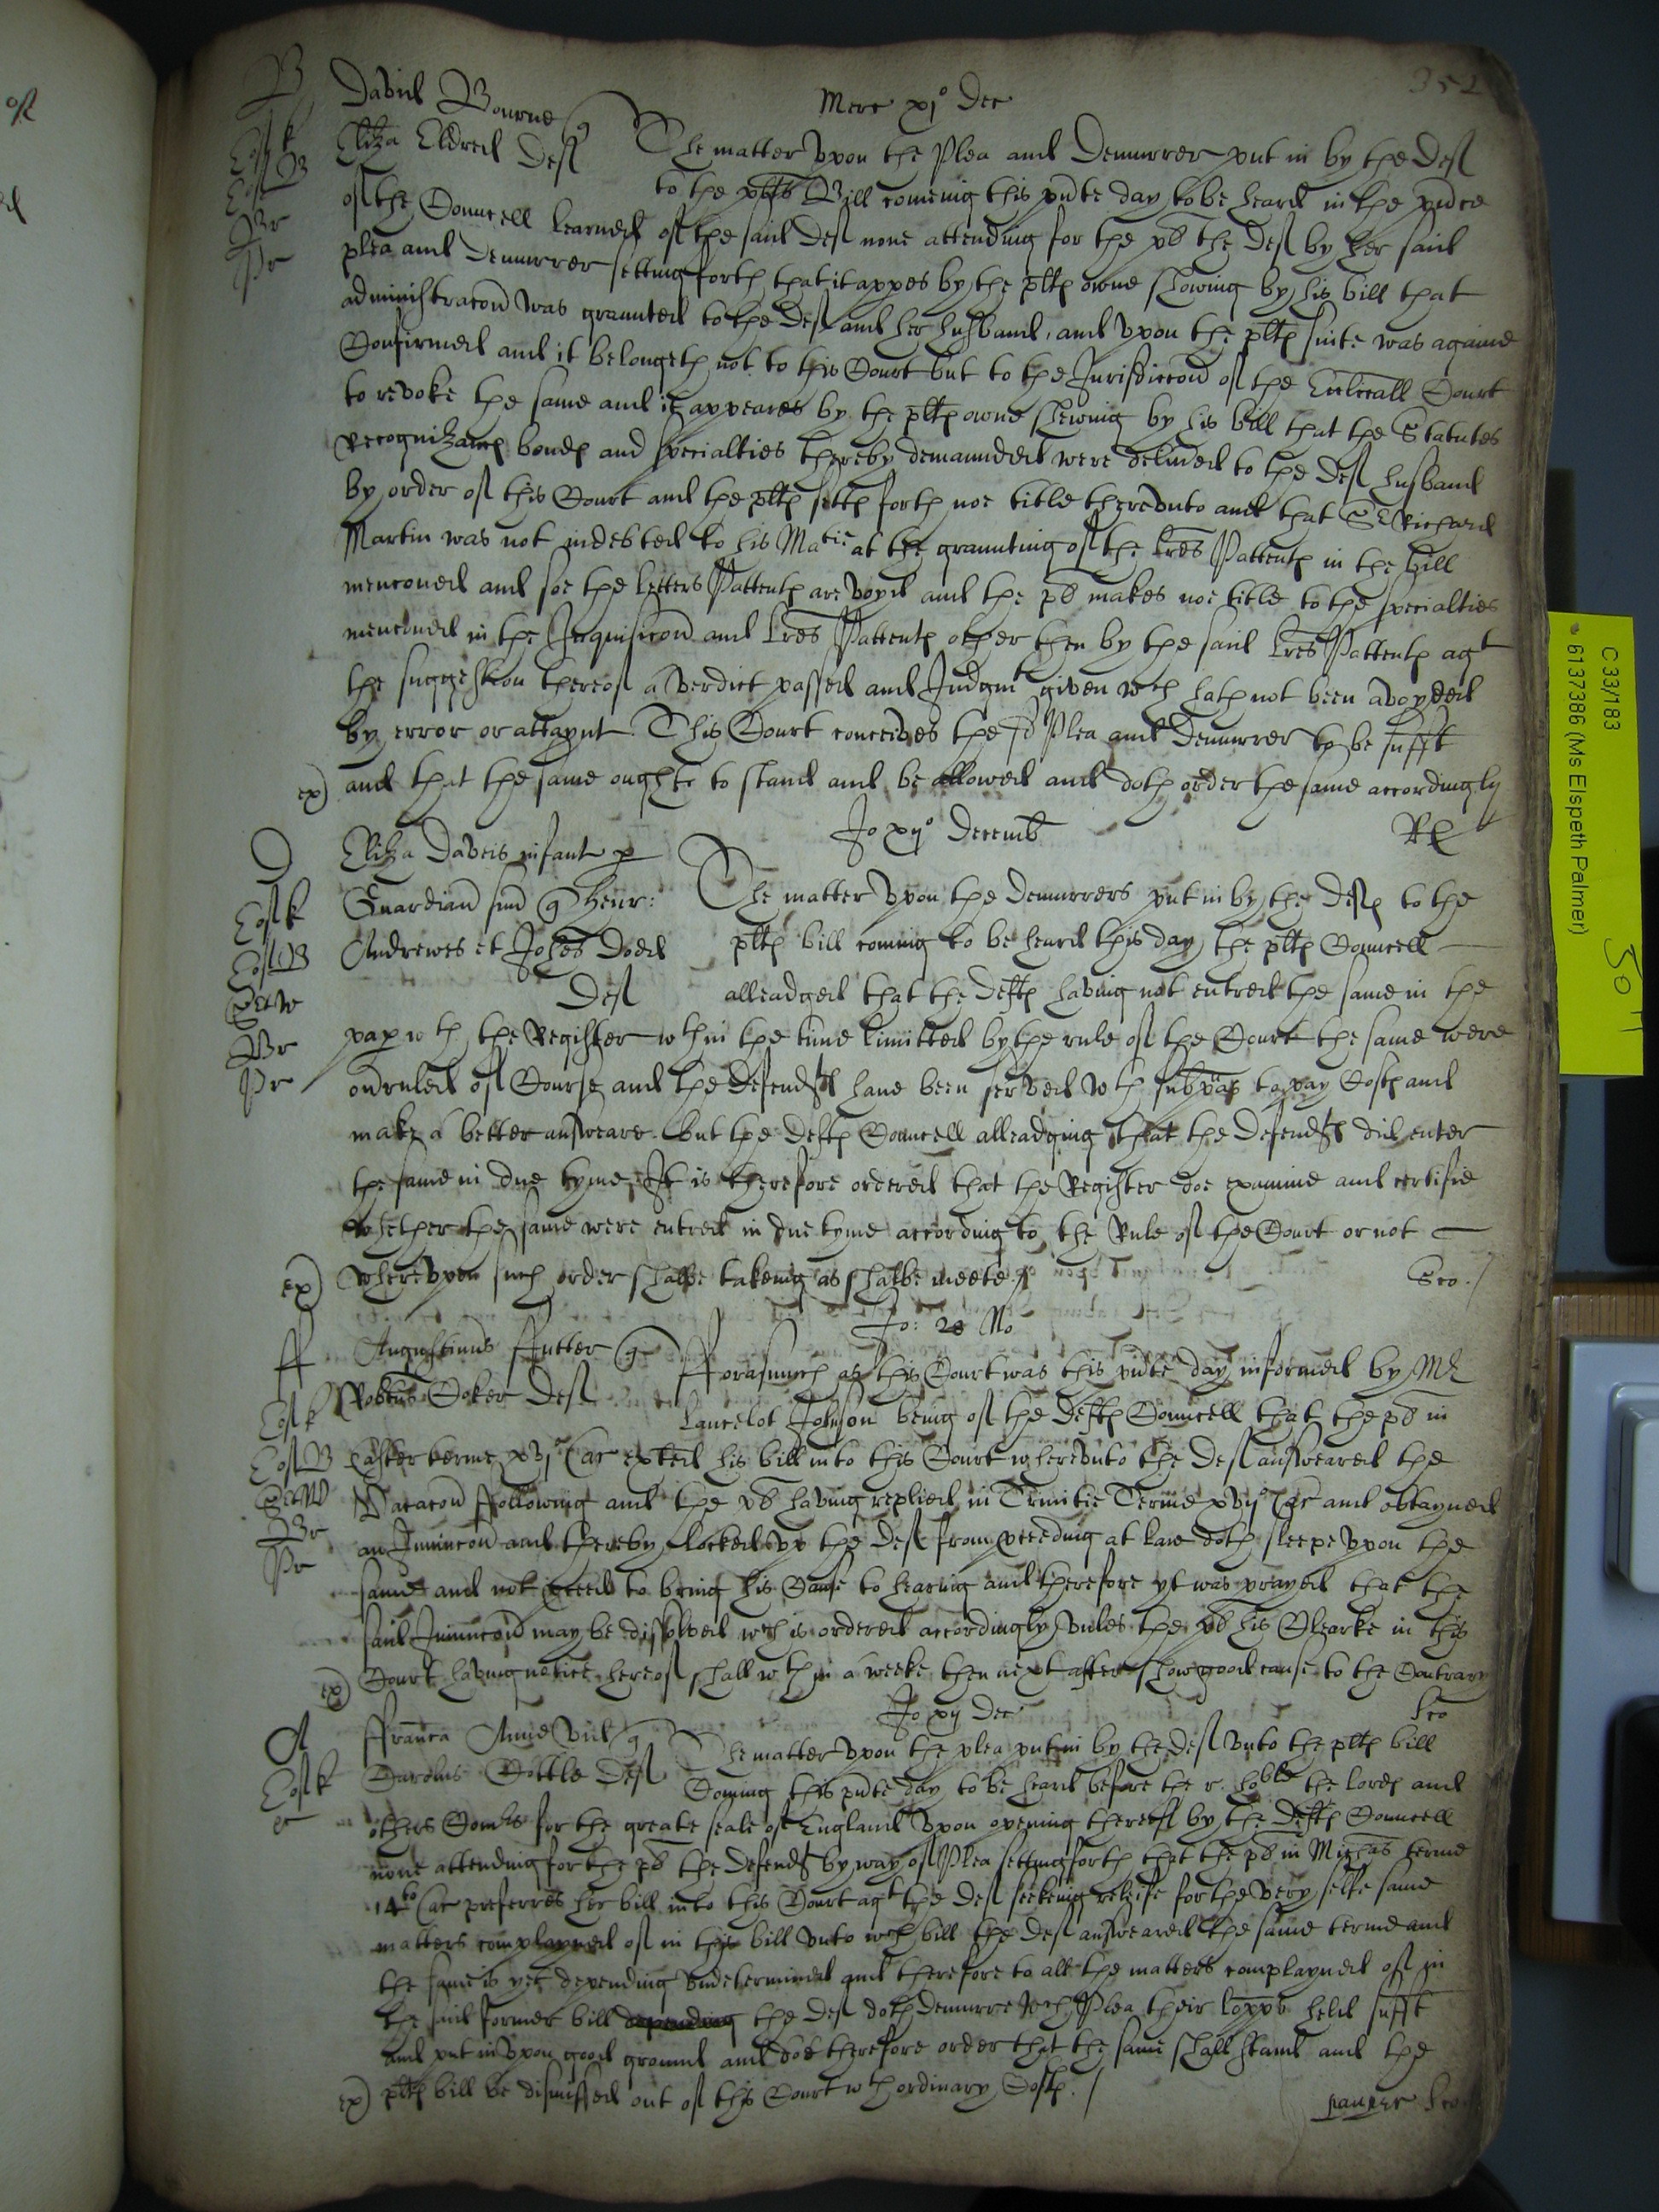 352
Merc xj° Dec
B David Bourne q
Eliza Eldred Def The matter upon the Plea and Demurrer put in by the Def
to the plts Bill coming this pnte day to be heard in the pnce
of the Councell learned of the said Def none attending for the pl the Def by her said
plea and Demurrer setting forth that it appes by the pltes owne showing by his bill that
administracon was graunted to the Def and her husband, and upon the pltes suite was againe
Confirmed and it belongeth not to this Court but to the Jurisdiccon of the Eccliall Court
to revoke the same and it appeares by the pltes owne shewing by his bill that the Statutes
Recognizances bondes and specialties thereby demaunded were delived to the Def husband
by order of this Court and the plte setts forth noe title thereunto and that Sr Richard
Martin was not indebted to his Matie at the graunting of the Lres Pattentes in the bill
menconed and soe the letters Pattentes are voyd and the pl makes noe title to the specialties
menconed in the Inquisicon and Lres Pattentes other then by the said Lres Pattentes agt
the suggestion thereof a Verdict passed and Judgmt given wch hath not been avoyded
by error or attaynt This Court conceives the sd Plea and Demurrer to be sufft
ex) and that the same oughte to stand and be allowed and doth order the same accordingly
Jo xij° Decemb
D Eliza Daveis infant p
Guardian sm q Henr:
Andrewes et Johes Doed
Def
The matter upon the demurrers put in by the Defes to the
pltes bill coming to be heard this day, the pltes Councell
alleadged that the deftes having not entred the same in the
pap wth the Register wthin the time limitted by the rule of the Court the same were
ovruled of Course and the defendtes have been served wth subpas to pay Costes and
make a better answeare. But the deftes Councell alleadging that the defendtes did enter
the same in due tyme, It is therefore ordered that the Register doe examine and certifie
whether the same were entred in due tyme according to the Rule of the Court or not
ex) whereupon such order shalbe takeing as shalbe meete
Jo: 28 No
ff Augustinus ffutter q
Robtus Coker Def
fforasmuch as this Court was this pnte day informed by Mr
Lancelot Johnson being of the Deftes Councell that the pl in
Easter terme xvj° Car exted his bill into this Court whereunto the Def answeared the
Vacacon ffollowing and the pl having replied in Trinitie Terme xvij° Car and obtayned
an Junnccon and thereby locked upp the Def from pceeding at Law doth sleepe upon the
same and not pceed to bring his Cause to hearing and therefore yt was prayed that the
said Junnccon may be dissolved wch is ordered accordingly unles the pl his Clearke in this
ex) Court having notice hereof shall wthin a weeke then next after show good cause to the Contrary
Jo xij Dec
A ffranca Anne vid q
Carolus Cottle Def
The matter upon the plea put in by the Def unto the pltes bill
Coming this pnte day to be heard before the r. hoble the Lordes and
others Comrs for the greate seale of England Upon opening thereof by the Deftes Councell
none attending for the pl the defendt by way of Plea setting forth that the pl in Michas terme
14to Car preferred her bill into this Court agt the Def seeking releife for the very selfe same
matters complayned of in this bill unto wch bill the Def answeared the same terme and
the same is yet depending undetermined and therefore to all the matters complayned of in
the said former bill depending the Def doth demurre wch Plea their Lopps held sufft
and put in upon good ground and doe therefore order that the same shall stand and the
ex) pltes bill be dismissed out of this Court wth ordinary Costes.
C 33/183
61373866 (Ms Elspeth Palmer)